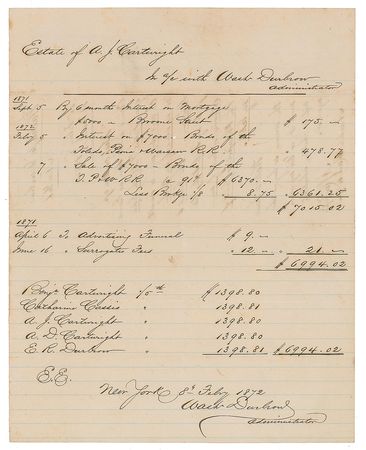 Estate of A. J. Cartwright
In a/c with Wash Durbrow
Administrator
1871
Sept 5 By 6 month Interest on Mortgage
$5000 - Broome Street $175.-
1872
Feby 5 " Interest on $7000 - Bonds of the
Toledo, Peoria & Warsaw R.R. " 478.77
7 " Sale of $7000 - Bonds of the
T. P & W R.R. a 91ct $6370.-
Less Brokge 1/8 8.75 " 6361.25
$7015.02
1871
April 6 To Advertising Funeral $9.-
June 16 " Surrogates Fees " 12.- " 21.-
$6994.02
Benjn Cartwright 1/5th $1398.80
Catharine Cassio " 1398.81
A. J. Cartwright " 1398.80
A. D. Cartwright " 1398.80
E. R. Durbrow " 1398.81 $6994.02
E.E.
New York 8th Feby 1872
Wash Durbrow
Administrator